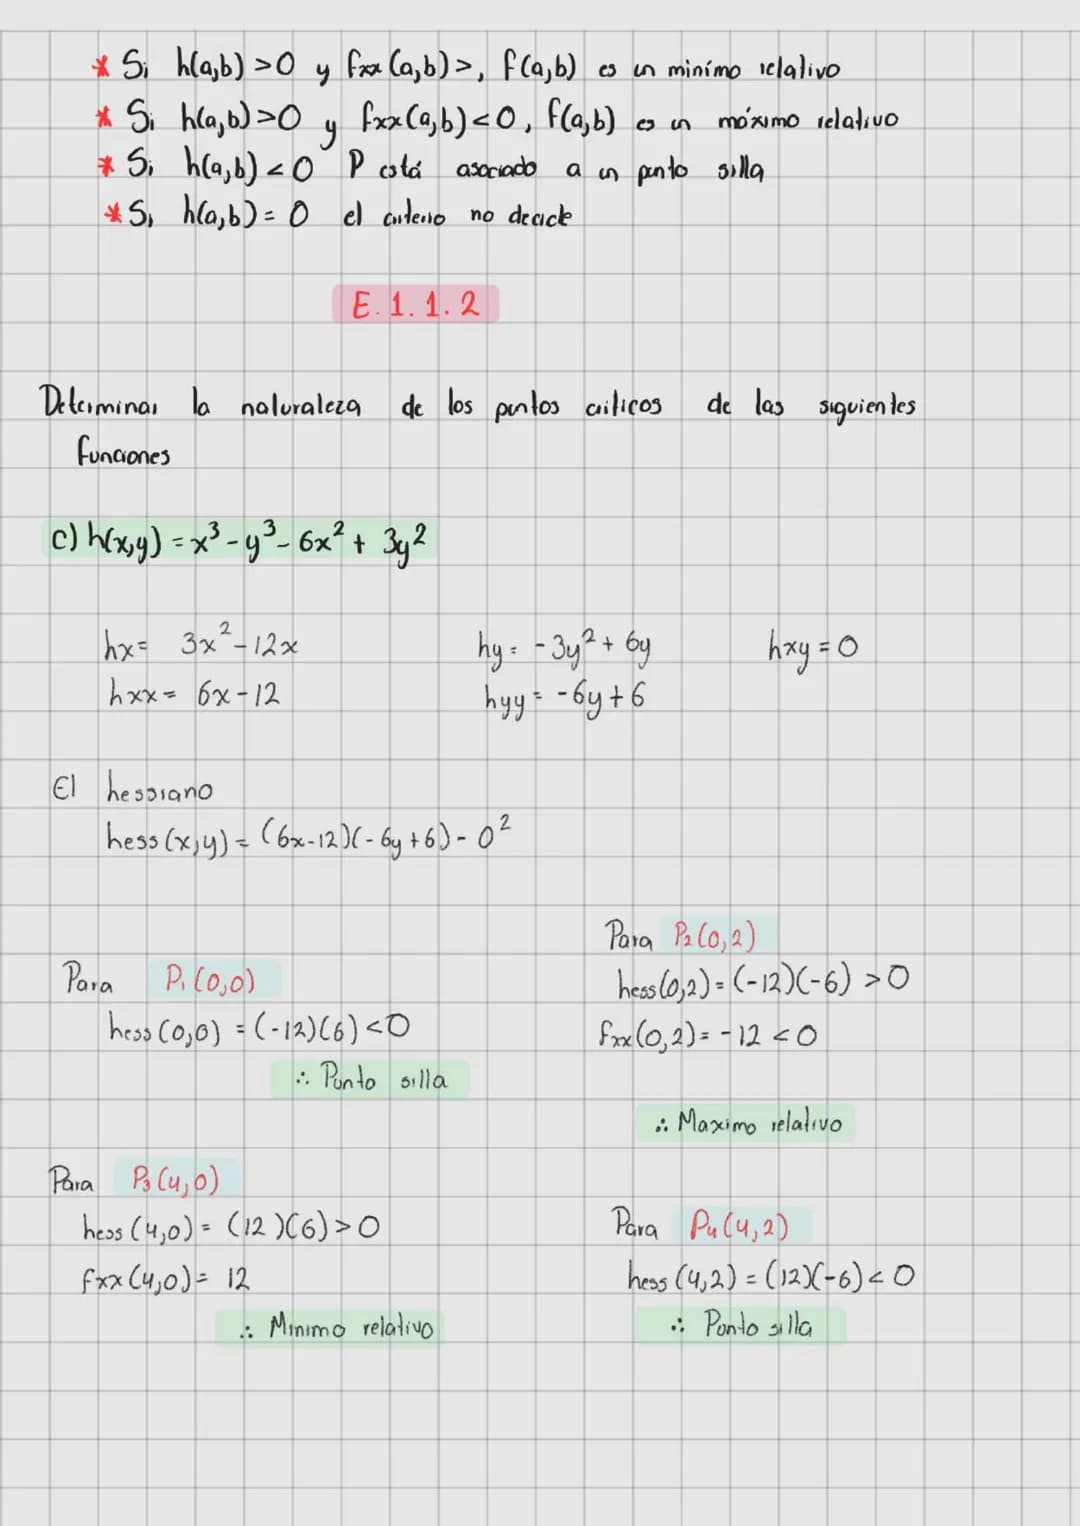 * Si h(a,b) >0 y fxx (a,b)>, f(a,b) es un minímo relativo
* Si h(a,b)>0 y fxx(a,b)<0, f(a,b) es un máximo relativo
* Si h(a,b) < 0 P está asociado a un punto silla
* Si h(a,b) = 0 el criterio no decide
E. 1. 1. 2
Determinar la naturaleza de los puntos criticos de las siguientes
funciones
c) h(x,y) = x³ - y³ - 6x² + 3y²
hx= 3x² - 12x hy= -3y² + 6y hxy = 0
hxx= 6x - 12 hyy= -6y + 6
El hessiano
hess (x,y) = (6x-12)(-6y+6) - 0²
Para P₁ (0,0)
hess (0,0) = (-12)(6) <0
∴ Punto silla
Para P₂ (0,2)
hess (0,2) = (-12)(-6) >0
fxx (0,2) = -12 < 0
∴ Maximo relativo
Para P₃ (4,0)
hess (4,0) = (12)(6) > 0
fxx (4,0) = 12
∴ Minimo relativo
Para P₄ (4,2)
hess (4,2) = (12)(-6) < 0
∴ Punto silla